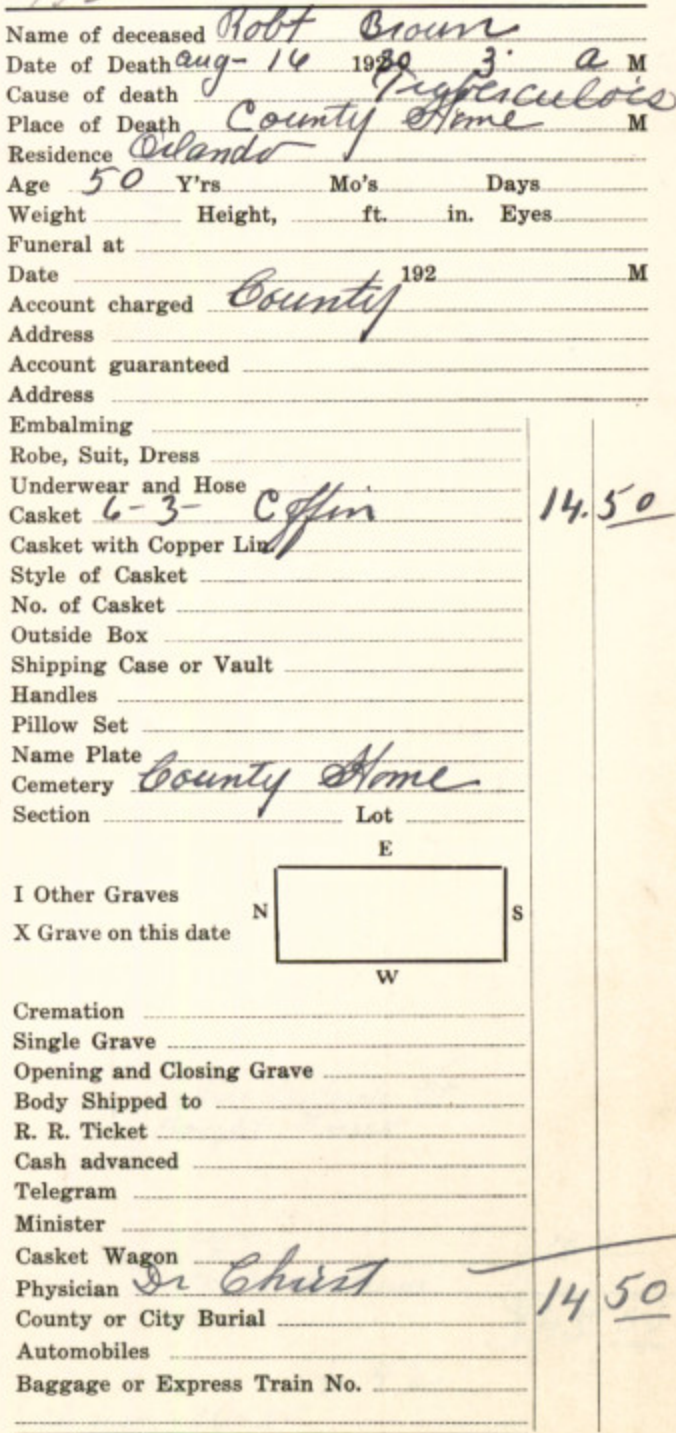 Name of deceased Robt Brown
Date of Death Aug - 16 1930 3 a M
Cause of death
Place of Death County Home M
Residence Orlando
Age 50 Y'rs Mo's Days
Weight Height, ft. in. Eyes
Funeral at
Date 192 M
Account charged County
Address
Account guaranteed
Address
Embalming
Robe, Suit, Dress
Underwear and Hose
Casket 6-3- Coffin 14.50
Casket with Copper Lin.
Style of Casket
No. of Casket
Outside Box
Shipping Case or Vault
Handles
Pillow Set
Name Plate
Cemetery County Home
Section Lot
E
I Other Graves
N S
X Grave on this date
W
Cremation
Single Grave
Opening and Closing Grave
Body Shipped to
R. R. Ticket
Cash advanced
Telegram
Minister
Casket Wagon
Physician Dr Christ 14 50
County or City Burial
Automobiles
Baggage or Express Train No.